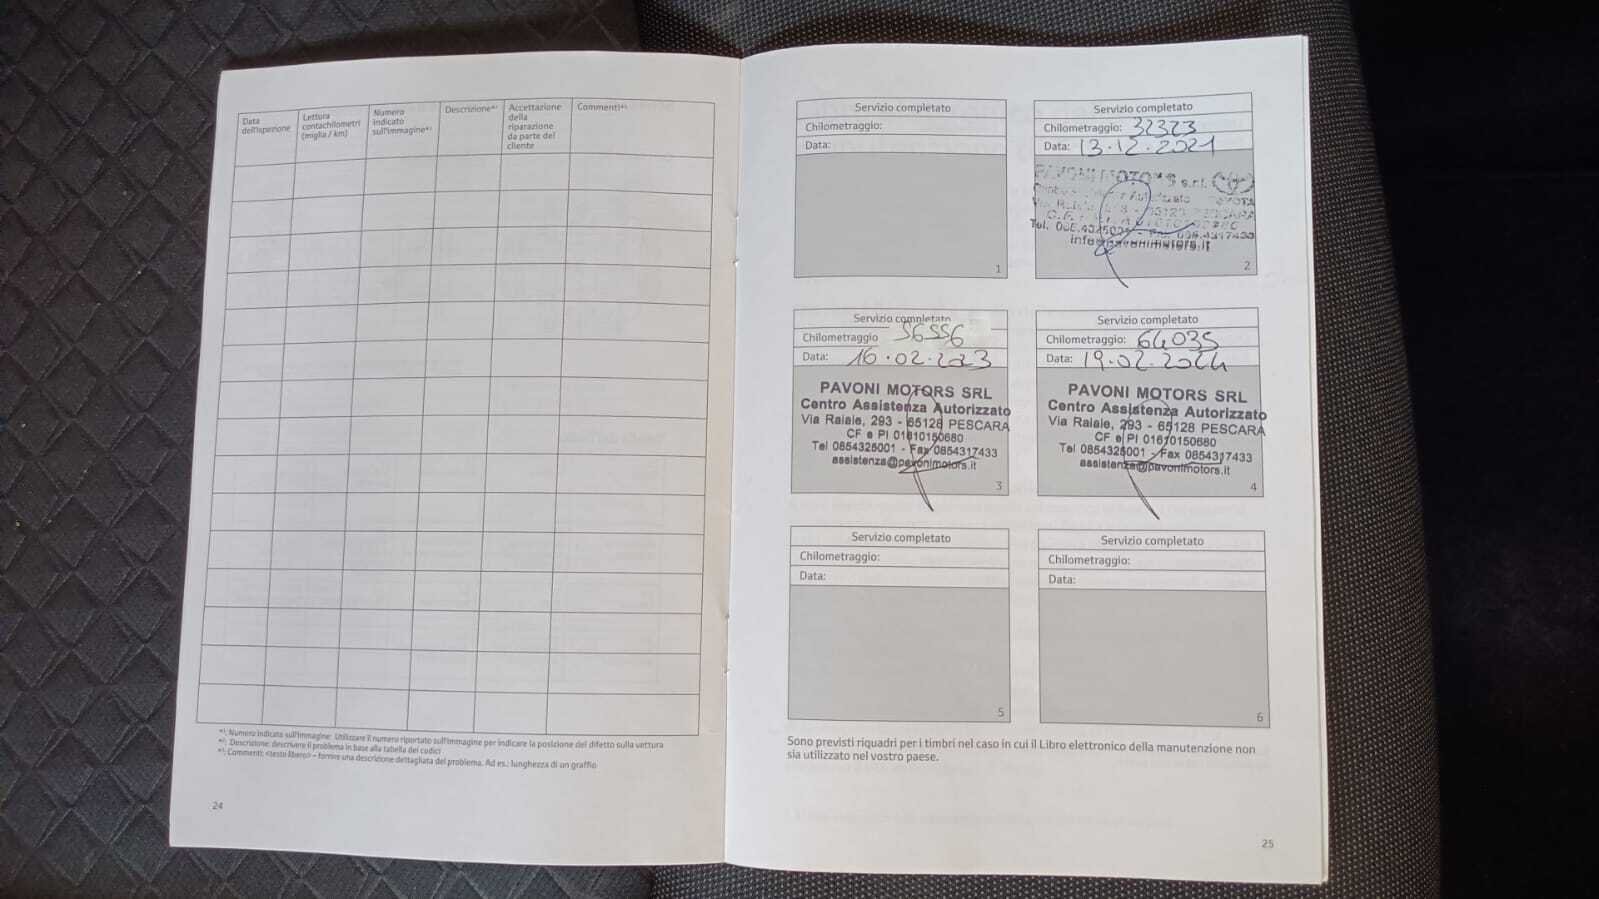 Data dell'ispezione
Lettura contachilometri (miglia / km)
Numero indicato sull'immagine*¹
Descrizione*²
Accettazione della riparazione da parte del cliente
Commenti*³
*¹: Numero indicato sull'immagine: Utilizzare il numero riportato sull'immagine per indicare la posizione del difetto sulla vettura
*²: Descrizione: descrivere il problema in base alla tabella dei codici
*³: Commenti: <testo libero> – fornire una descrizione dettagliata del problema. Ad es.: lunghezza di un graffio
24
Servizio completato
Chilometraggio:
Data:
1
Servizio completato
Chilometraggio: 32323
Data: 13.12.2021
PAVONI MOTORS s.r.l.
Autorizzato TOYOTA
Via Raiale
PESCARA
Tel.
info@pavonimotors.it
2
Servizio completato
Chilometraggio 56556
Data: 16.02.2023
PAVONI MOTORS SRL
Centro Assistenza Autorizzato
Via Raiale, 293 - 65128 PESCARA
CF e PI 01610150680
Tel 0854325001 - Fax 0854317433
assistenza@pavonimotors.it
3
Servizio completato
Chilometraggio: 64035
Data: 19.02.2024
PAVONI MOTORS SRL
Centro Assistenza Autorizzato
Via Raiale, 293 - 65128 PESCARA
CF e PI 01610150680
Tel 0854325001 - Fax 0854317433
assistenza@pavonimotors.it
4
Servizio completato
Chilometraggio:
Data:
5
Servizio completato
Chilometraggio:
Data:
6
Sono previsti riquadri per i timbri nel caso in cui il Libro elettronico della manutenzione non
sia utilizzato nel vostro paese.
25